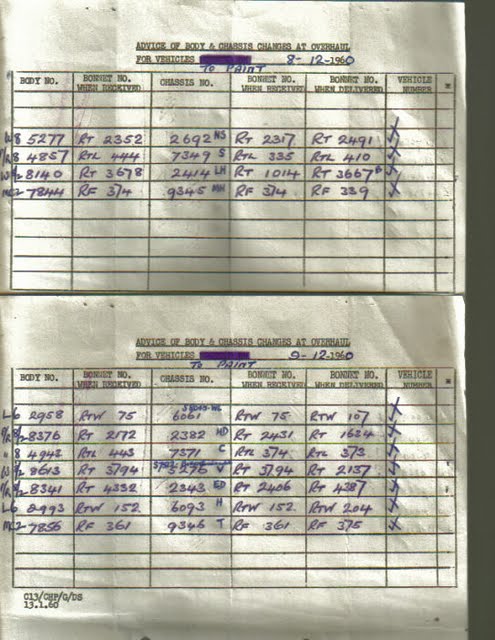 ADVICE OF BODY & CHASSIS CHANGES AT OVERHAUL
FOR VEHICLES 8-12-1960
TO PAINT
BODY NO. BONNET NO. WHEN RECEIVED CHASSIS NO. BONNET NO. WHEN RECEIVED BONNET NO. WHEN DELIVERED VEHICLE NUMBER *
8 5277 RT 2352 2692 NS RT 2317 RT 2491
8 4857 RTL 444 7349 S RTL 335 RTL 410
8140 RT 3678 2414 LH RT 1014 RT 3667
7844 RF 374 9345 MH RF 374 RF 339
ADVICE OF BODY & CHASSIS CHANGES AT OVERHAUL
FOR VEHICLES 9-12-1960
TO PAINT
BODY NO. BONNET NO. WHEN RECEIVED CHASSIS NO. BONNET NO. WHEN RECEIVED BONNET NO. WHEN DELIVERED VEHICLE NUMBER *
L6 2958 RTW 75 6061 RTW 75 RTW 107
8376 RT 2172 2382 HD RT 2431 RT 1634
" 8 4943 RTL 443 7371 C RTL 374 RTL 373
8613 RT 3794 RT 3794 RT 2137
8341 RT 4332 2343 ED RT 2406 RT 4387
L6 2993 RTW 152 6093 H RTW 152 RTW 204
7856 RF 361 9346 T RF 361 RF 375
C13/CHP/G/DS
13.1.60